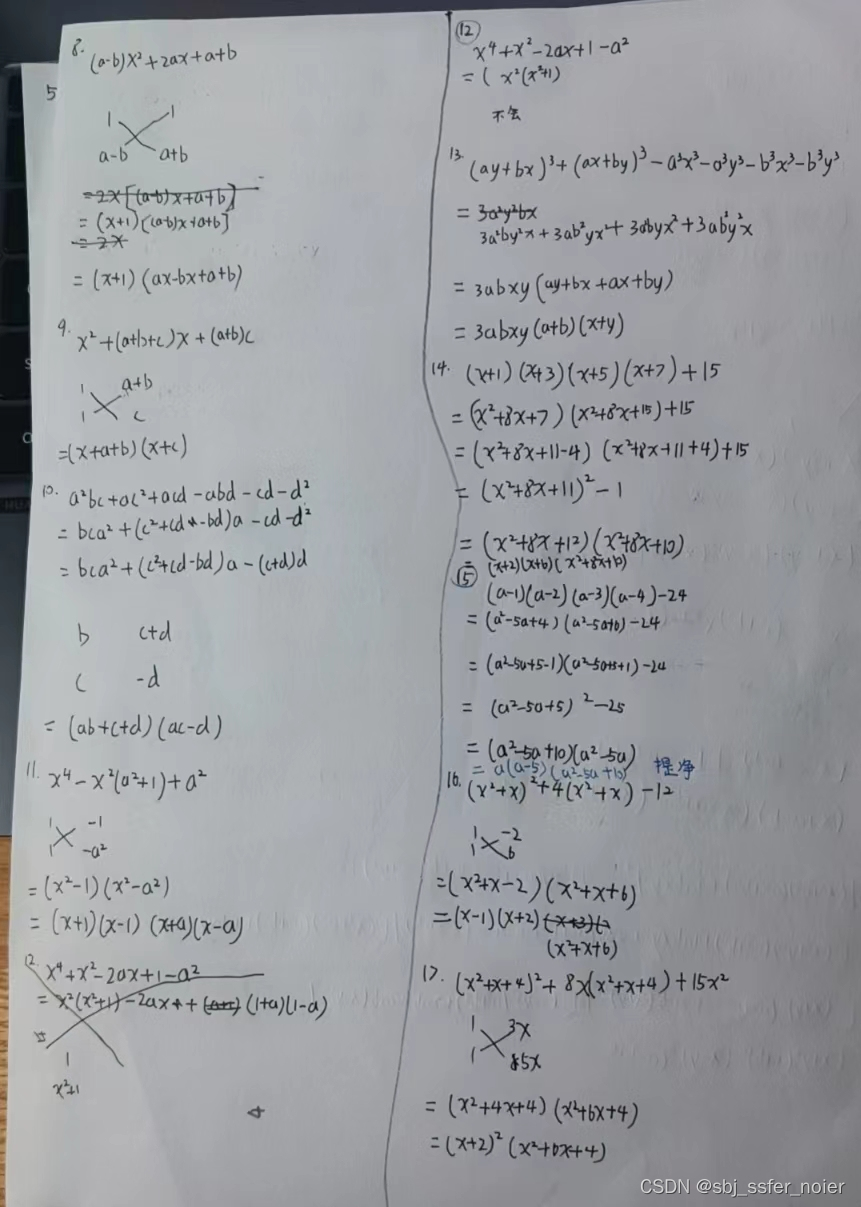 8. (a-b)x²+2ax+a+b
5
1 1
a-b a+b
=2x[(a-b)x+a+b]
=(x+1)[(a-b)x+a+b]
=2x
=(x+1)(ax-bx+a+b)
9. x²+(a+b+c)x+(a+b)c
1 a+b
1 c
=(x+a+b)(x+c)
10. a²bc+ac²+acd-abd-cd-d²
=bca²+(c²+cd-bd)a-cd-d²
=bca²+(c²+cd-bd)a-(c+d)d
b c+d
c -d
=(ab+c+d)(ac-d)
11. x⁴-x²(a²+1)+a²
1 -1
1 -a²
=(x²-1)(x²-a²)
=(x+1)(x-1)(x+a)(x-a)
12 x⁴+x²-2ax+1-a²
=x²(x²+1)-2ax+(1+a)(1-a)
1
x²+1
⑫
x⁴+x²-2ax+1-a²
=(x²(x²+1)
不会
13. (ay+bx)³+(ax+by)³-a³x³-a³y³-b³x³-b³y³
=3a²y²bx
3a²by²x+3ab²yx²+3a²byx²+3ab²y²x
=3abxy(ay+bx+ax+by)
=3abxy(a+b)(x+y)
14. (x+1)(x+3)(x+5)(x+7)+15
=(x²+8x+7)(x²+8x+15)+15
=(x²+8x+11-4)(x²+8x+11+4)+15
=(x²+8x+11)²-1
=(x²+8x+12)(x²+8x+10)
=(x+2)(x+6)(x²+8x+10)
⑮
(a-1)(a-2)(a-3)(a-4)-24
=(a²-5a+4)(a²-5a+6)-24
=(a²-5a+5-1)(a²-5a+5+1)-24
=(a²-5a+5)²-25
=(a²-5a+10)(a²-5a)
=a(a-5)(a²-5a+10) 提净
16. (x²+x)²+4(x²+x)-12
1 -2
1 6
=(x²+x-2)(x²+x+6)
=(x-1)(x+2)(x+3)(
(x²+x+6)
17. (x²+x+4)²+8x(x²+x+4)+15x²
1 3x
1 5x
=(x²+4x+4)(x²+6x+4)
=(x+2)²(x²+6x+4)
CSDN @sbj_ssfer_noier